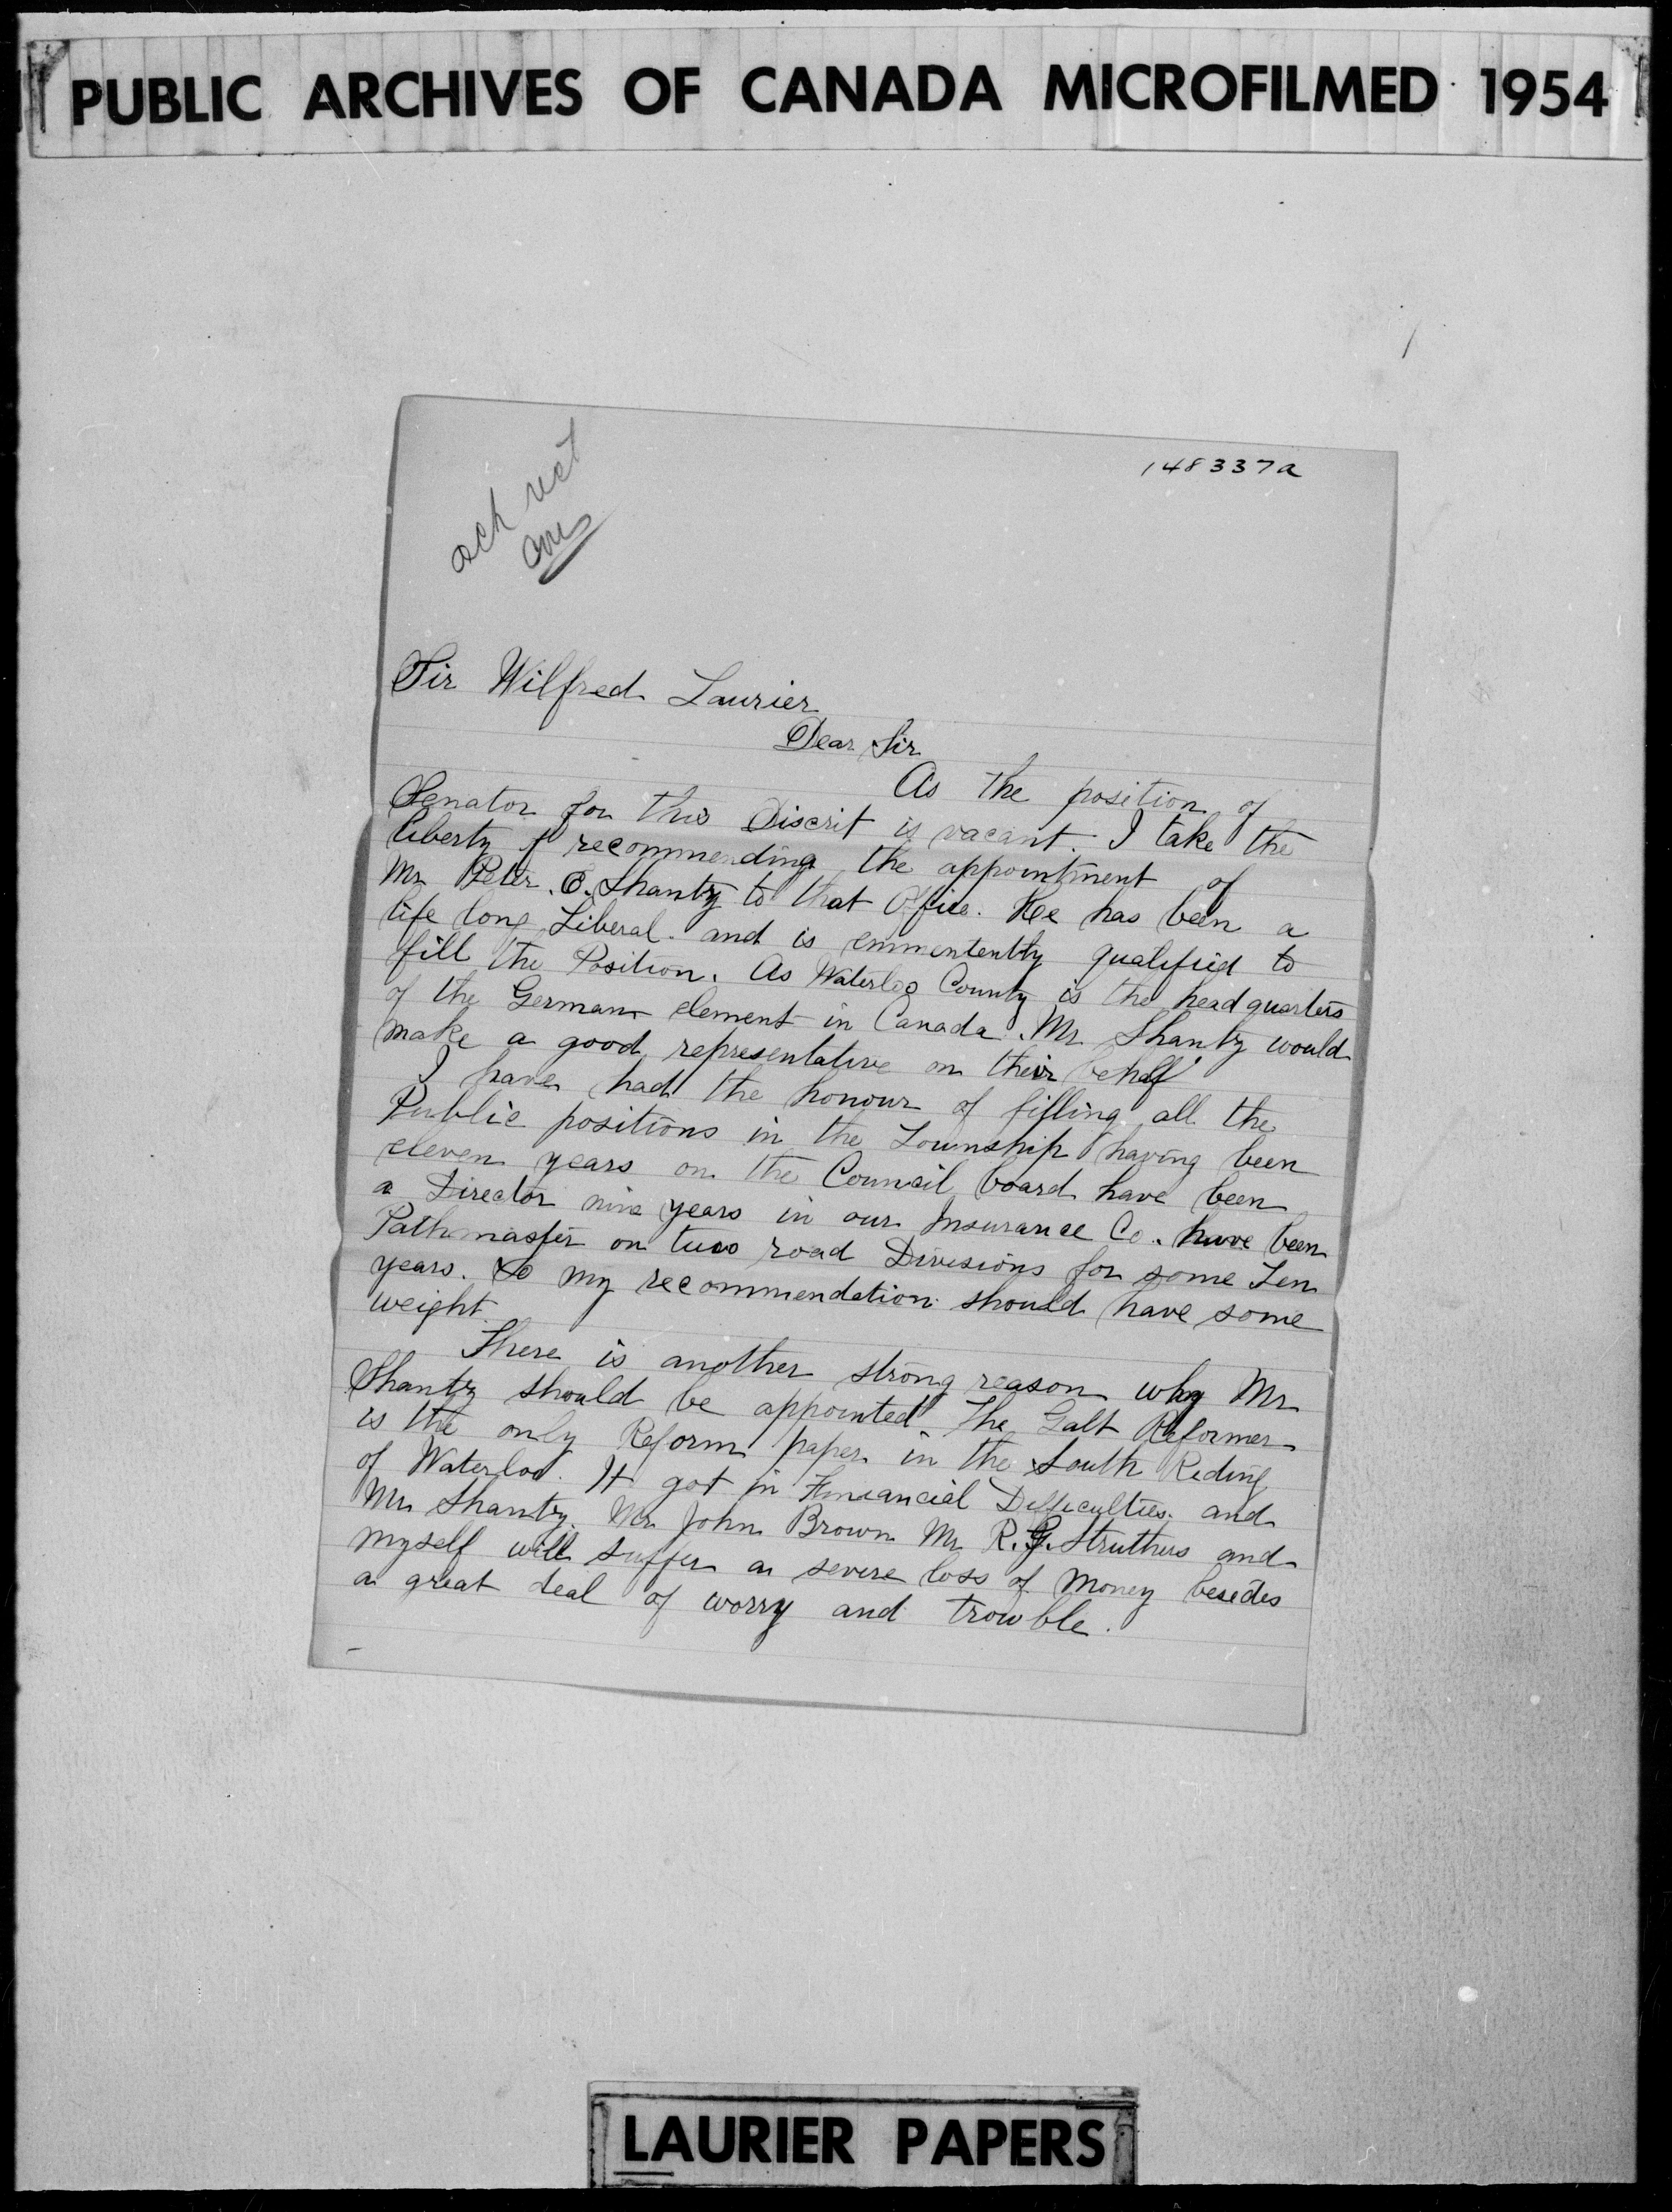 PUBLIC ARCHIVES OF CANADA MICROFILMED 1954
148337a
ack
Sir Wilfred Laurier
Dear Sir
As the position of
Senator for this Discrit is vacant. I take the
liberty of recommending the appointment of
Mr Peter. E. Shantz to that Office. He has been a
life long Liberal. and is emmentently qualified to
fill the Position. As Waterloo County is the headquarters
of the German element in Canada. Mr Shantz would
make a good representative on their behalf
I have had the honour of filling all the
Public positions in the Township having been
eleven years on the Council board have been
a Director nine years in our Insurance Co. have been
Pathmaster on two road Divisions for some Ten
years. So my recommendation should have some
weight
There is another strong reason why Mr
Shantz should be appointed The Galt Reformer
is the only Reform paper in the South Riding
of Waterloo. It got in Finiancial Difficulties. and
Mr Shantz. Mr John Brown Mr R. G. Struthers and
myself will suffer a severe loss of money besides
a great deal of worry and trowble.
LAURIER PAPERS